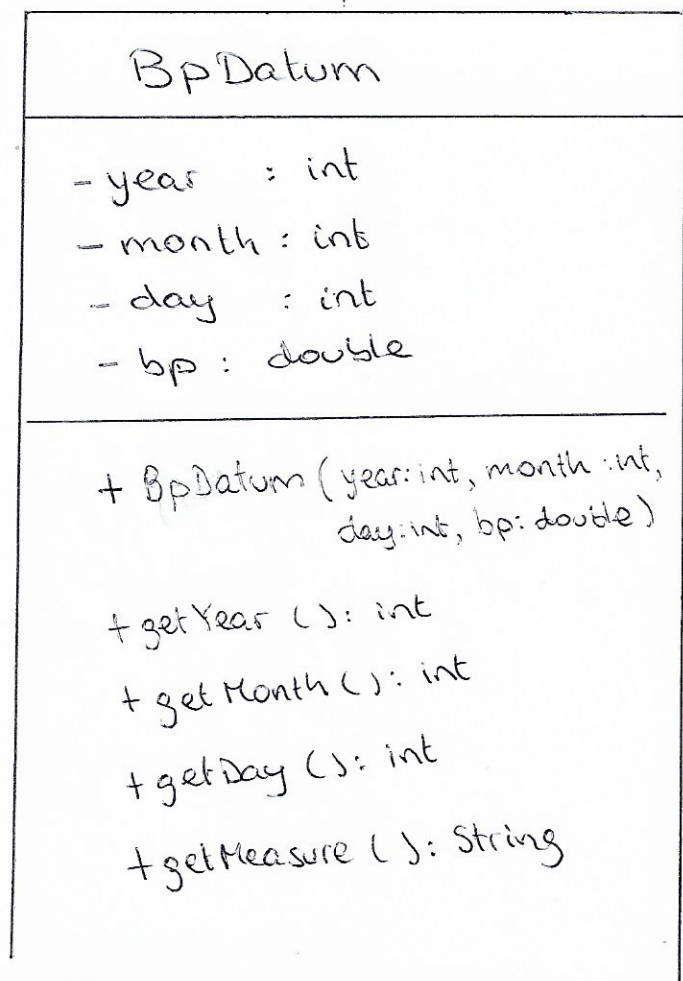 BpDatum
- year : int
- month : int
- day : int
- bp : double
+ BpDatum (year:int, month:int,
day:int, bp:double)
+ getYear ( ): int
+ getMonth ( ): int
+ getDay ( ): int
+ getMeasure ( ): String